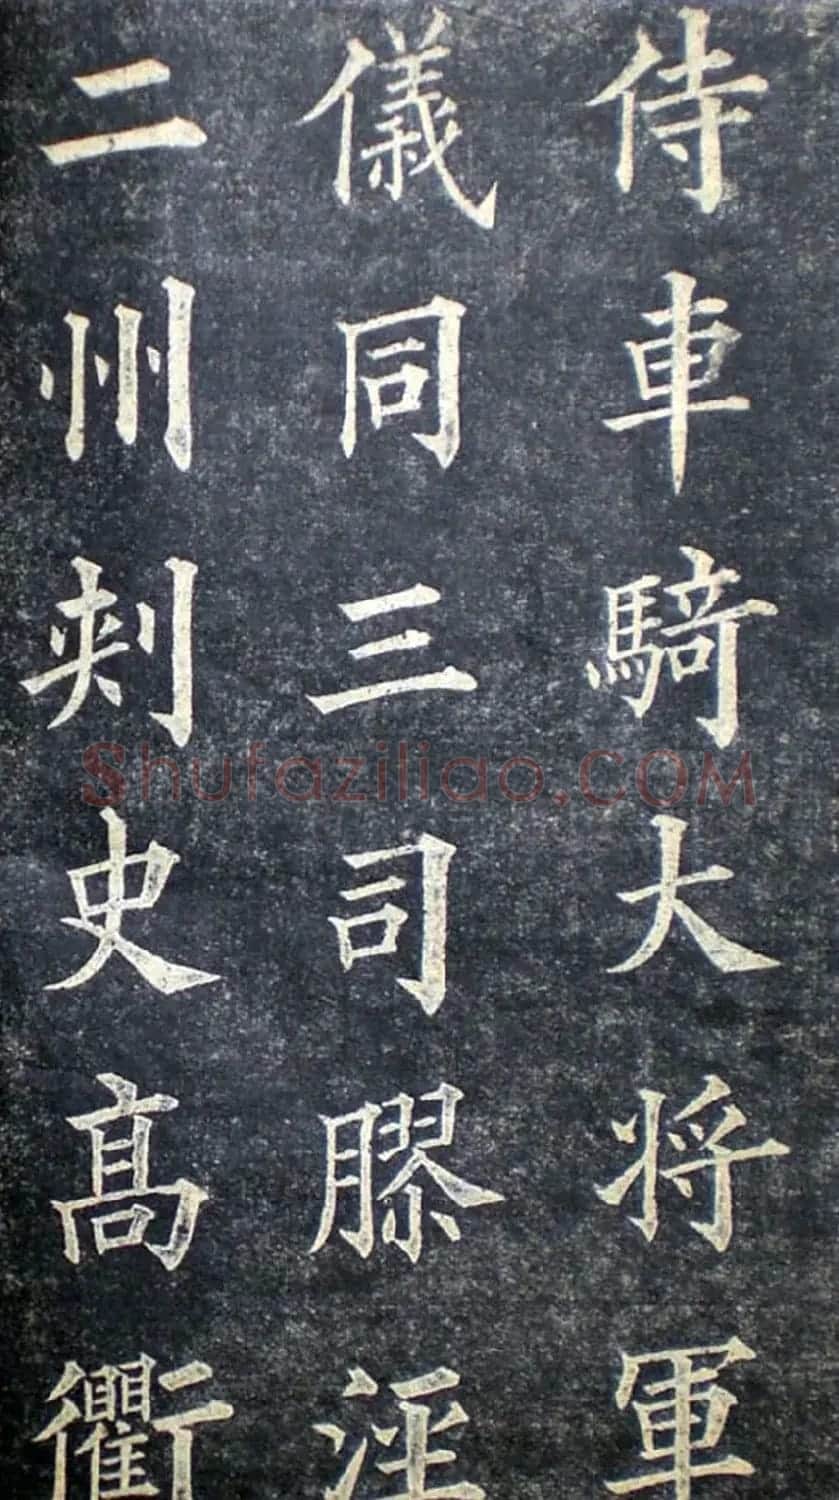 侍車騎大将軍
儀同三司膠涇
二州刾史髙衢
Shufaziliao.COM